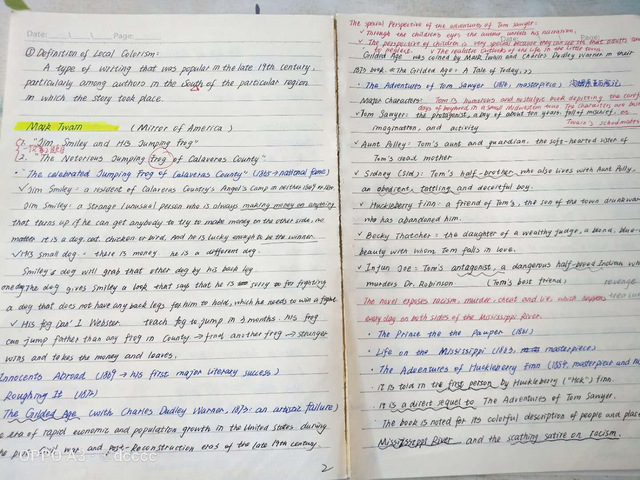 Date: Page:
① Definition of Local Colorism:
A type of writing that was popular in the late 19th century,
particularly among authors in the South of the particular region
in which the story took place.
Mark Twain (Mirror of America)
1. "Jim Smiley and His Jumping frog"
2. "The Notorious Jumping frog of Calaveras County"
• The celebrated Jumping frog of Calaveras County" (1865 → national fame)
✓ Jim Smiley: a resident of Calaveras County's Angel's Camp in
Jim Smiley: a strange / unusual person who is always making money on anything
that turns up if he can get anybody to try to make money on the other side, no
matter it is a dog, cat, chicken or bird. And he is lucky enough to be the winner.
✓ His small dog: there is money. he is a different dog.
Smiley's dog will grab that other dog by his back leg
one day The dog gives Smiley a look that says that he is sorry to for fighting
a dog that does not have any back legs for him to hold, which he needs to win a fight.
✓ His fog Dan'l Webster. teach fog to jump in 3 months. his frog
can jump father than any frog in County → find another frog → stranger
wins and takes the money and leaves.
Innocents Abroad (1869 → his first major literary success)
Roughing It (1872)
The Gilded Age (with Charles Dudley Warner, 1873: an artistic failure)
era of rapid economic and population growth in the United States during
the post-Civil war and post-Reconstruction eras of the late 19th century.
OPPO A3 dcccc
2
The special Perspective of the adventures of Tom Sawyer:
✓ Through the children's eyes the author unveils his narration;
✓ The perspective of children is very special because they can see
to neglect. ✓ The realistic outlooks of the life in the little town
Date: Page:
Gilded Age was coined by Mark Twain and Charles Dudley Warner in their
1873 book. <The Gilded Age: A Tale of Today.>>
• The Adventures of Tom Sawyer (1876, masterpiece)
Major Characters: Tom is humorous and nostalgic book depicting the
days of boyhood in a small Midwestern town. The characters are
Tom Sawyer: the protagonist, a boy of about ten years. full of mischief,
Twain's schoolmates
imagination, and activity
✓ Aunt Polley: Tom's aunt and guardian. the soft-hearted sister of
Tom's dead mother
✓ Sidney (Sid): Tom's half-brother who also lives with Aunt Polly,
an obedient, tattling and deceitful boy.
✓ Huckleberry Finn: a friend of Tom's, the son of the town
who has abandoned him.
✓ Becky Thatcher: the daughter of a wealthy judge, a
beauty with whom Tom falls in love.
✓ Injun Joe: Tom's antagonist, a dangerous half-breed Indian,
murders Dr. Robinson (Tom's best friend) revenge
The novel exposes racism, murder, cheat and lies which happens
every day on both sides of the Mississippi River.
• The Prince the the Pauper (1881)
• Life on the Mississippi (1883, masterpiece)
• The Adventures of Huckleberry Finn (1884, masterpiece and
It is told in the first person by Huckleberry ("Huck") Finn.
It is a direct sequel to The Adventures of Tom Sawyer.
The book is noted for its colorful description of people and
Mississippi River and the scathing satire on racism.